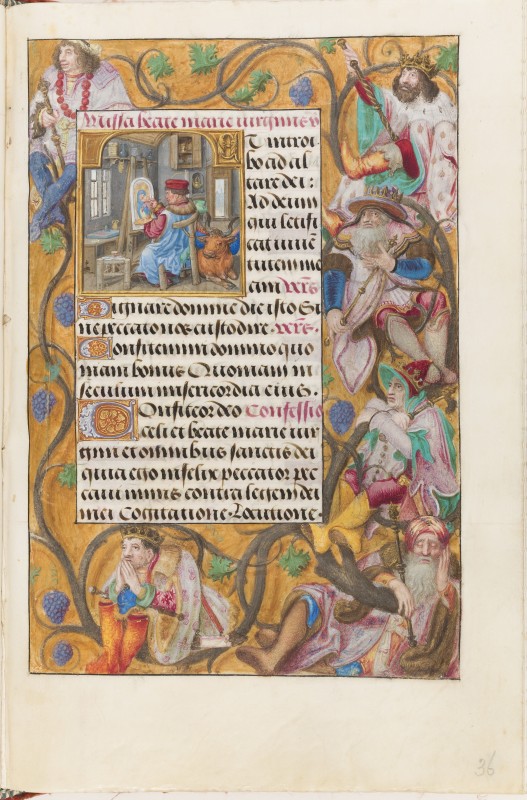 Missa beate marie virginis v
Introi
bo ad al
tare dei:
Ad deum
qui letifi
cat iuuē
tutem me
am Vers
Dignare domine die isto Si
ne peccato nos custodire. Vers.
Confitemini domino quo
niam bonus Quoniam in
seculum misericordia eius.
Confiteor deo Confessio
celi et beate marie vir
gini et omnibus sanctis dei
quia ego infelix peccator pec
caui nimis contra legem dei
mei Cogitatione. Locutione.
36